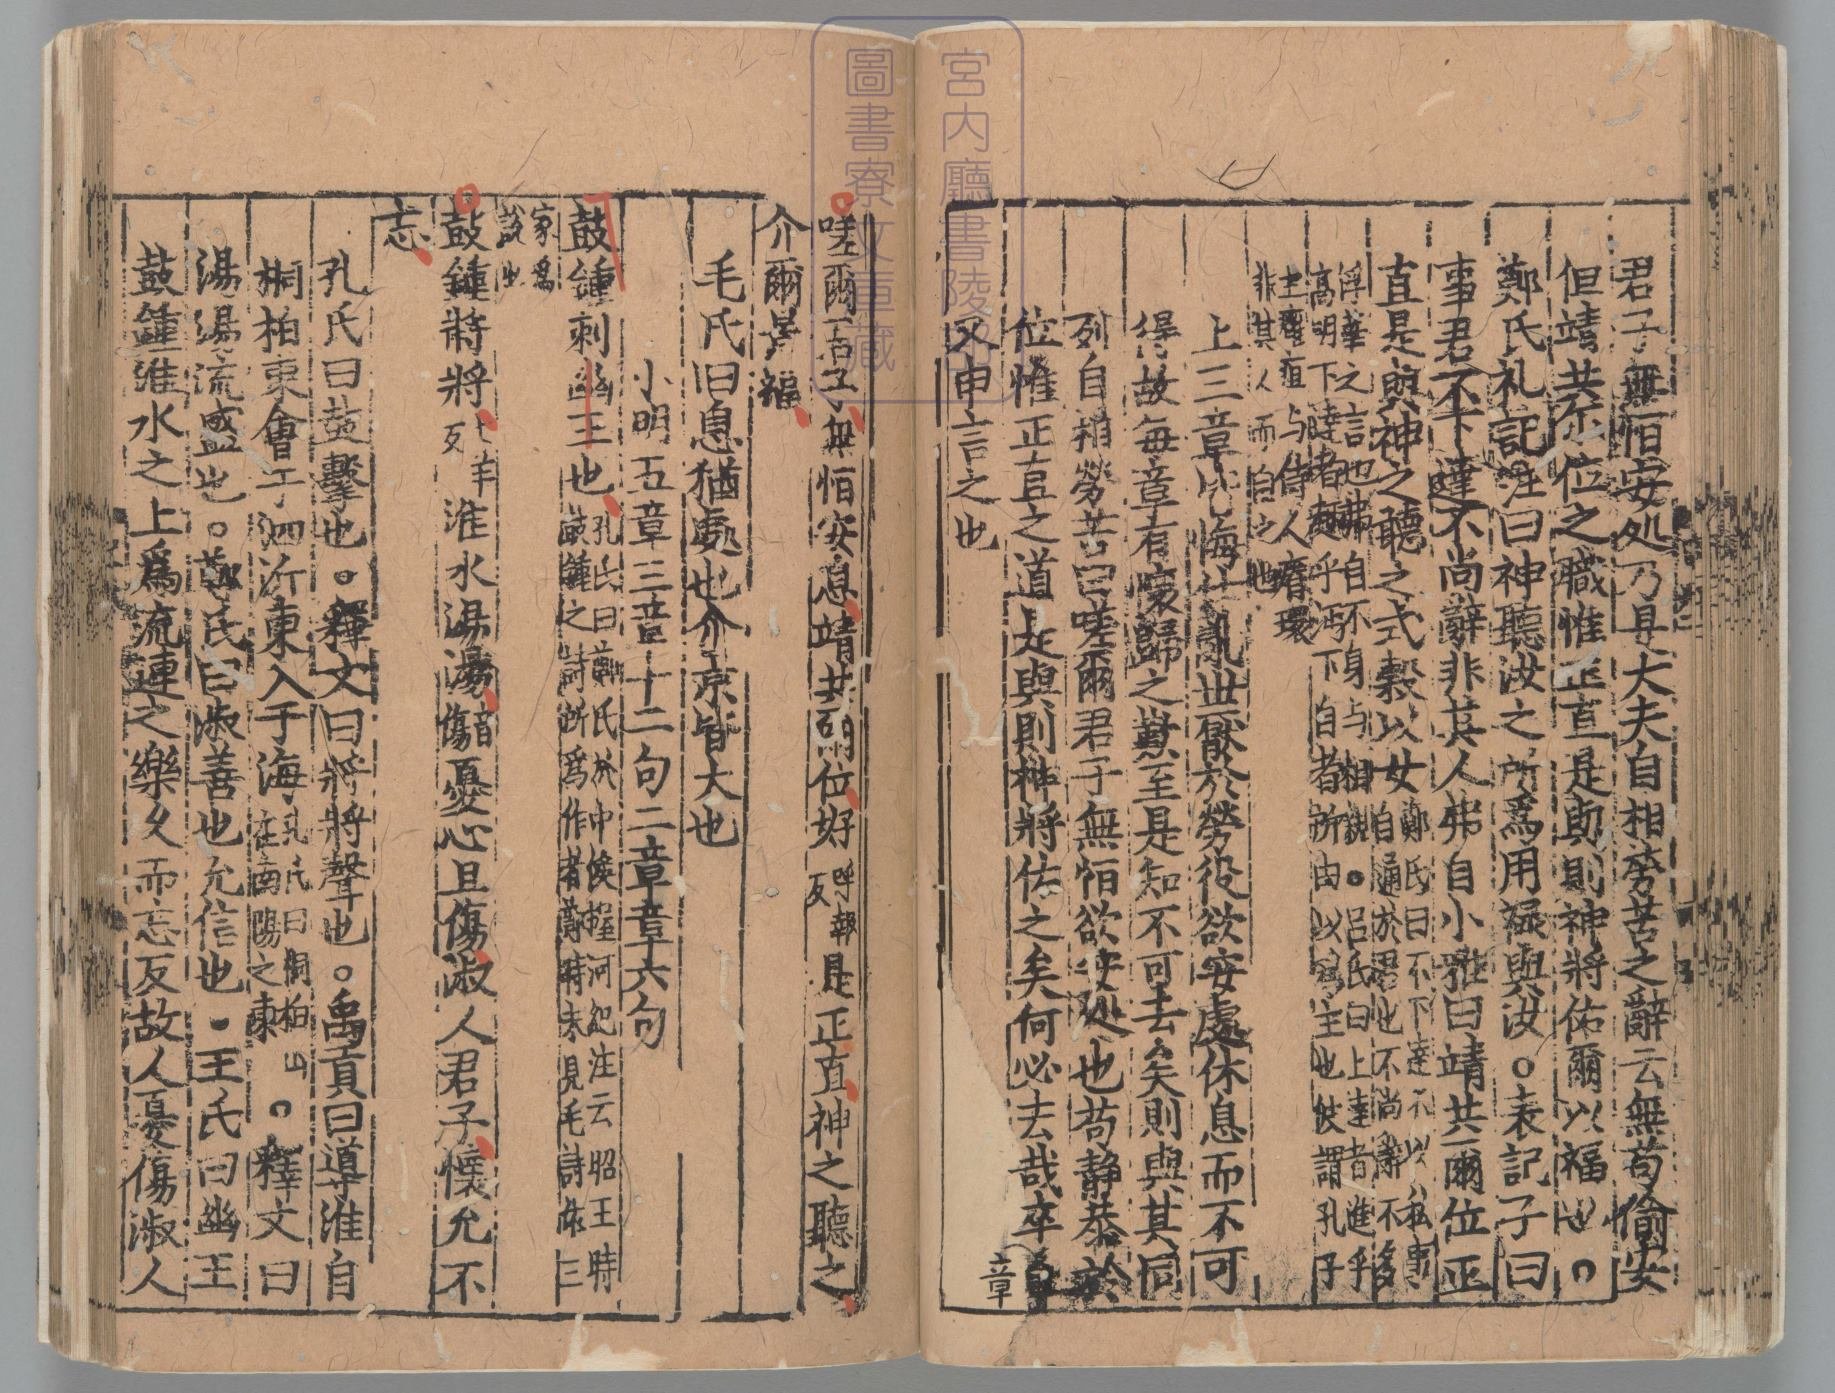 君子無怕安処乃具大夫自相勞苦之辭云無苟偷安
但靖共尓位之職惟正直是助則神將佑爾以福也○
鄭氏礼記注曰神聽汝之所爲用祿與汝○表記子曰
事君不下達不尚辭非其人弗自小雅曰靖共爾位正
直是與神之聽之式穀以女
鄭氏曰不下達不以私事
自通於君也不尚辭不多
浮華之言也弗自不身与相親○呂氏曰上達者進乎
高明下達者趨乎汚下自者所由以爲主也彼謂孔子
主癰疽与侍人瘠環
非其人而自之也
上三章比悔仕亂世厭於勞役欲安處休息而不可
得故每章有懷歸之歎至是知不可去矣則與其同
列自相勞苦曰嗟爾君子無怕欲安处也苟静恭於
位惟正直之道是與則神將佑之矣何必去哉卒章
章
又申言之也
嗟爾君子無怕安息靖共爾位好
呼報
反
是正直神之聽之
介爾景福
毛氏曰息猶處也介京皆大也
小明五章三章十二句二章章六句
鼓鍾刺幽王也
孔氏曰鄭氏於中候握河紀注云昭王時
鼓鍾之詩所爲作者鄭時未見毛詩依三
家爲
說也
鼓鍾將將
七羊
反
淮水湯湯
音
傷
憂心且傷淑人君子懷允不
忘
孔氏曰鼓擊也○釋文曰將將聲也○禹貢曰導淮自
桐柏東會于泗沂東入于海
孔氏曰桐柏山
在南陽之東
○釋文曰
湯湯流盛也○鄭氏曰淑善也允信也○王氏曰幽王
鼓鍾淮水之上爲流連之樂久而忘反故人憂傷淑人
宮内廳書陵部
圖書寮文庫藏